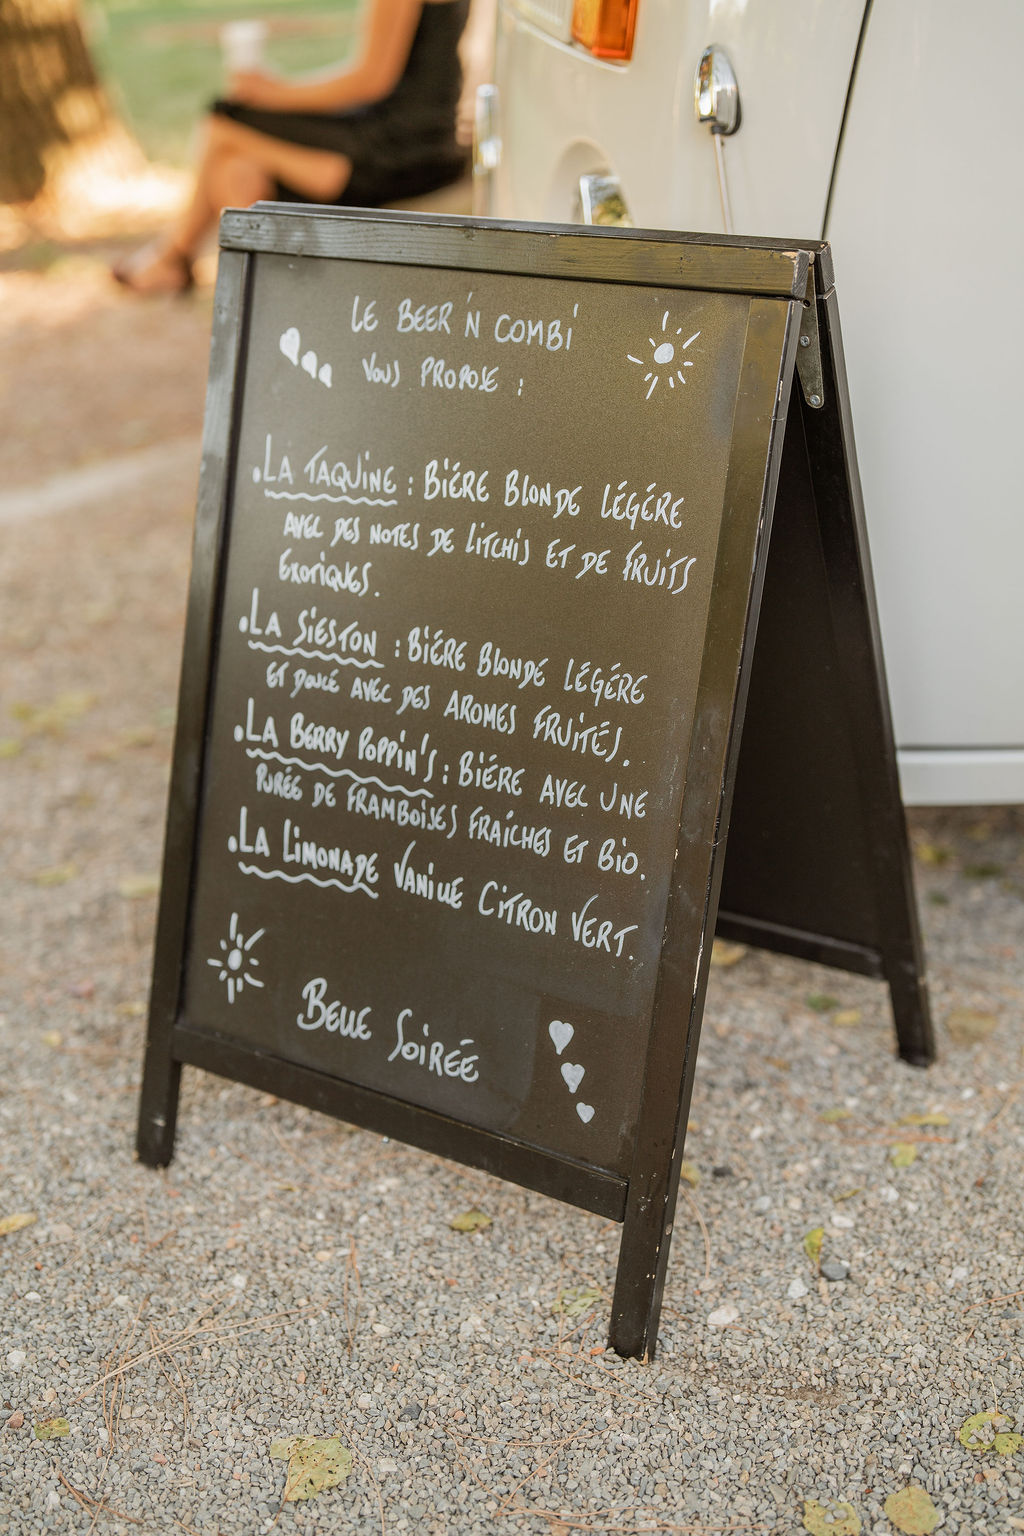 LE BEER'N COMBI
VOUS PROPOSE :
.LA TAQUINE : BIÉRE BLONDE LÉGÉRE
AVEC DES NOTES DE LITCHIS ET DE FRUITS
EXOTIQUES.
.LA SIESTON : BIÉRE BLONDE LÉGÉRE
ET DOUCE AVEC DES AROMES FRUITÉS.
.LA BERRY POPPIN'S : BIÉRE AVEC UNE
PURÉE DE FRAMBOISES FRAICHES ET BIO.
.LA LIMONADE VANILLE CITRON VERT.
BELLE SOIRÉE